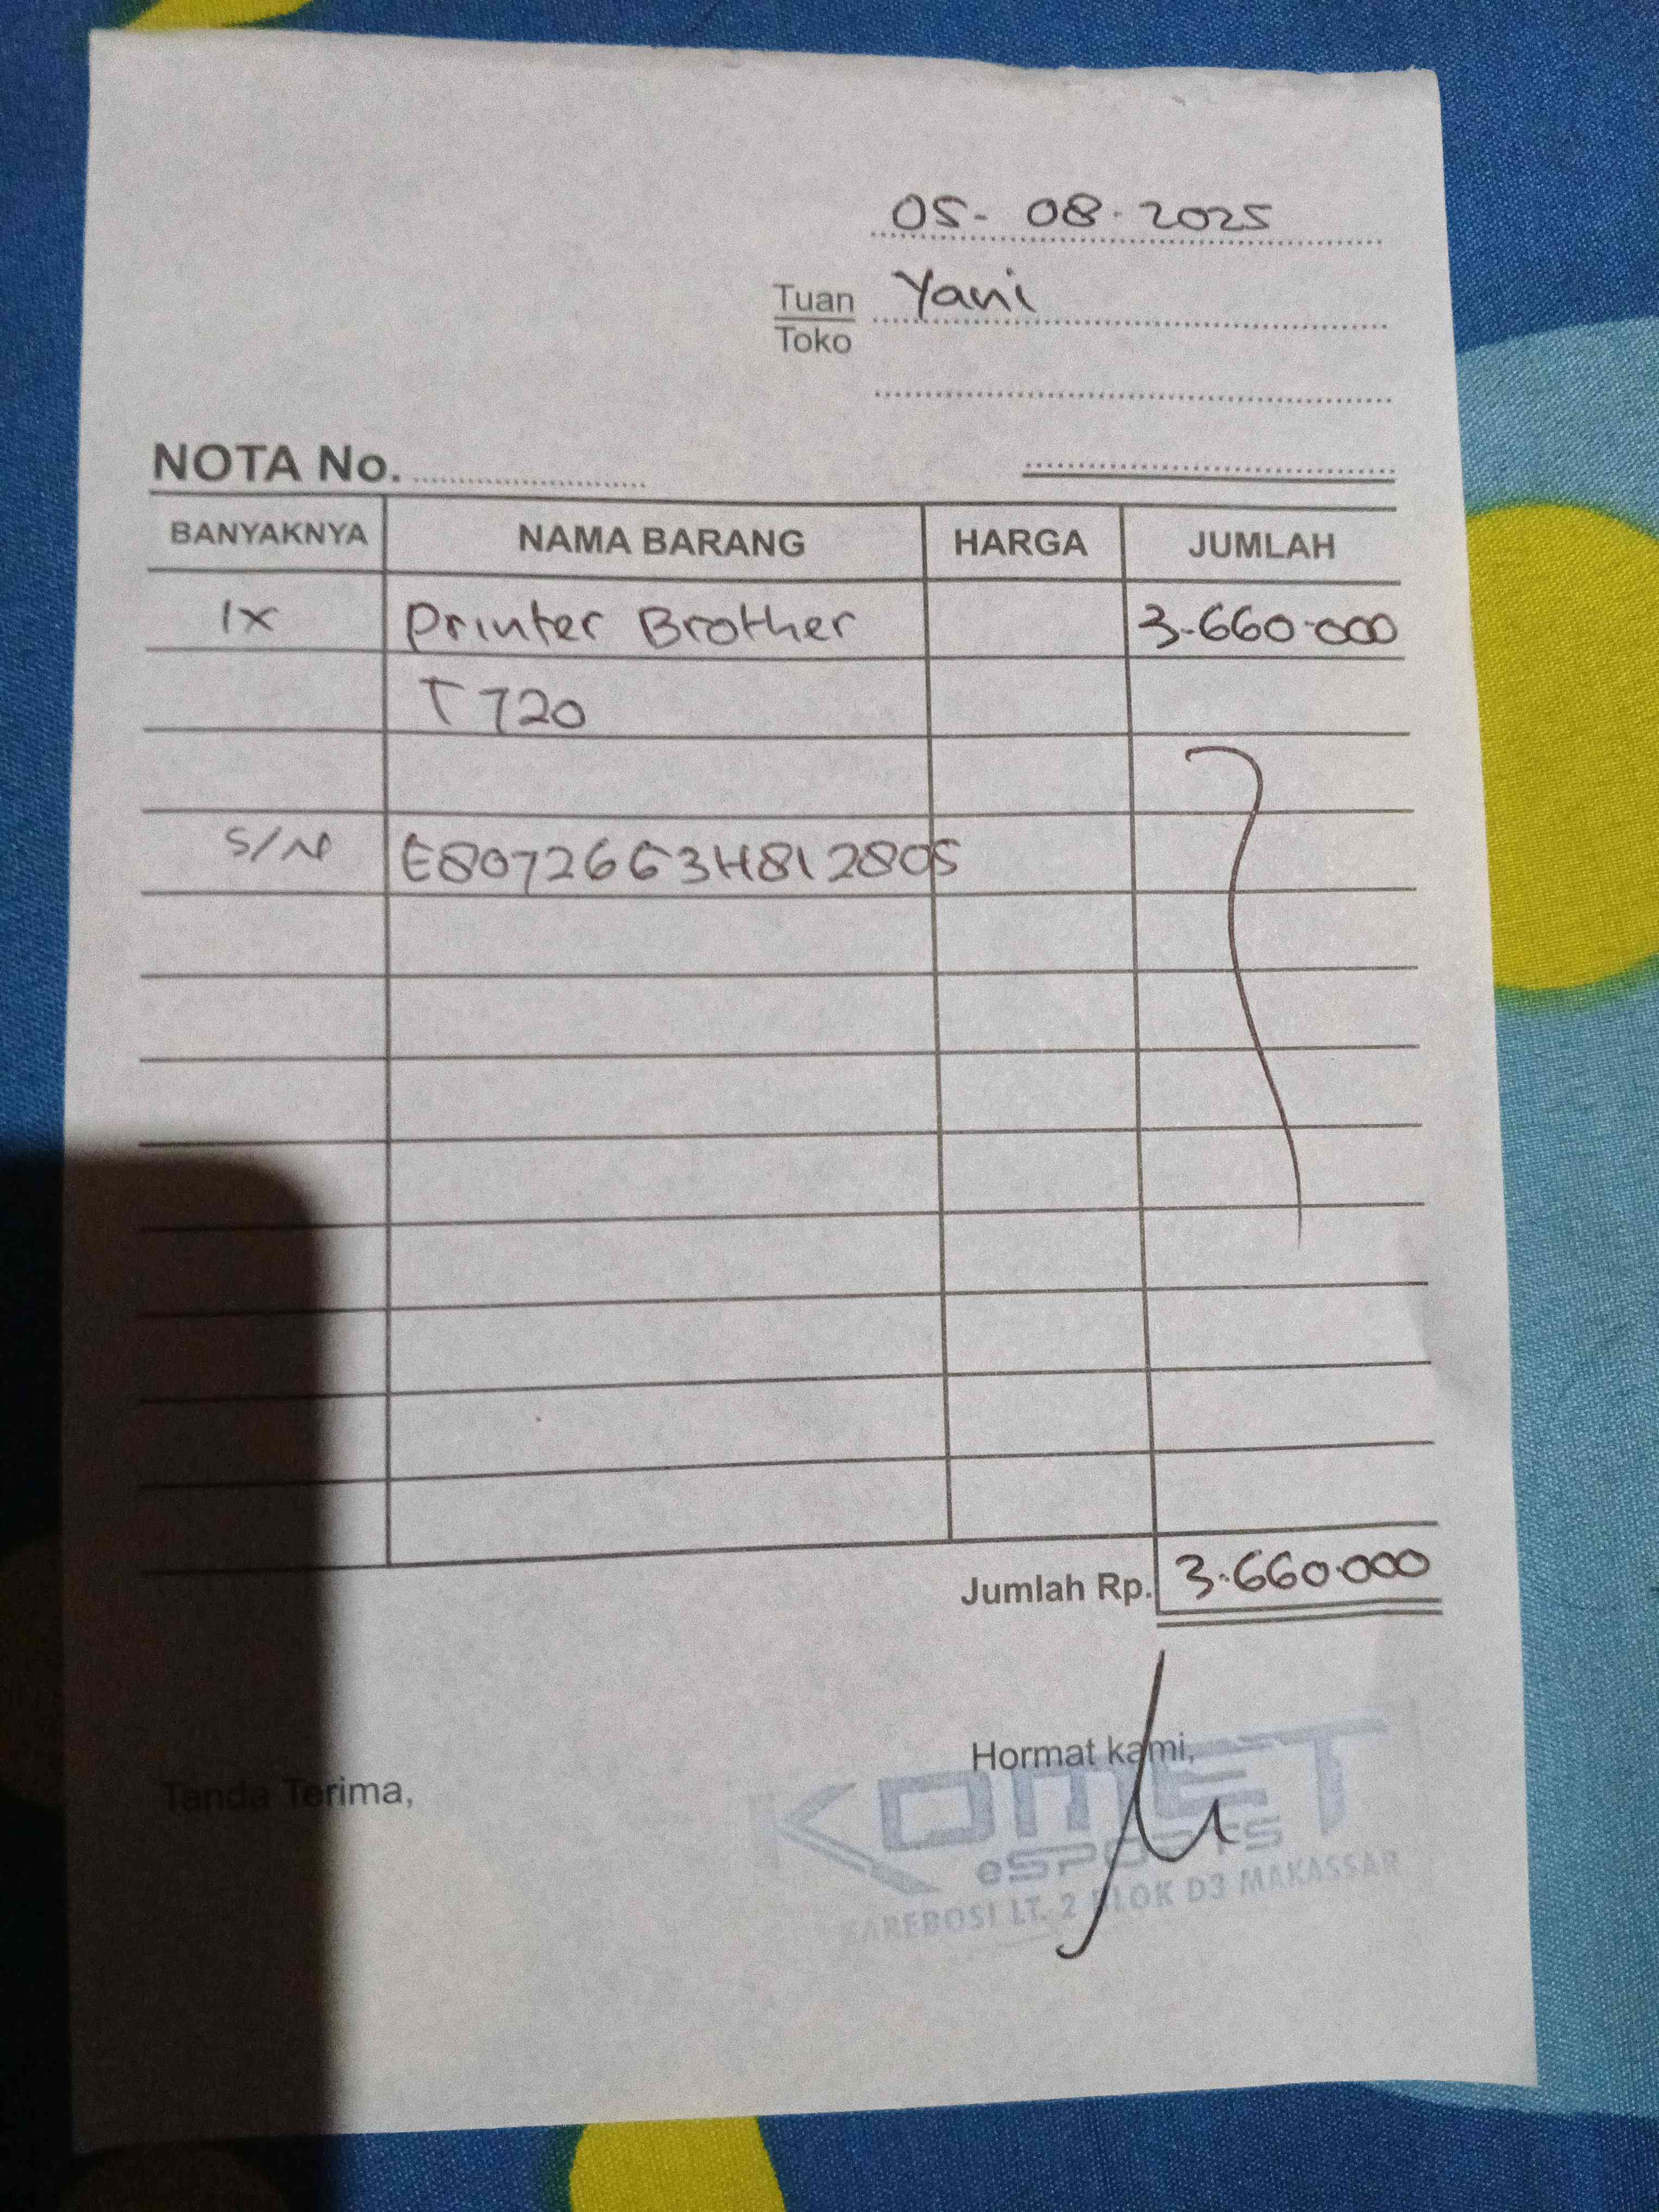 05-08-2025
Tuan Yani
Toko
NOTA No.
BANYAKNYA NAMA BARANG HARGA JUMLAH
1x Printer Brother 3.660.000
T720
S/N E80726G3H812805
Jumlah Rp. 3.660.000
Hormat kami,
Tanda Terima,
KOMET
eSPORTS
KAREBOSI LT. 2 BLOK D3 MAKASSAR